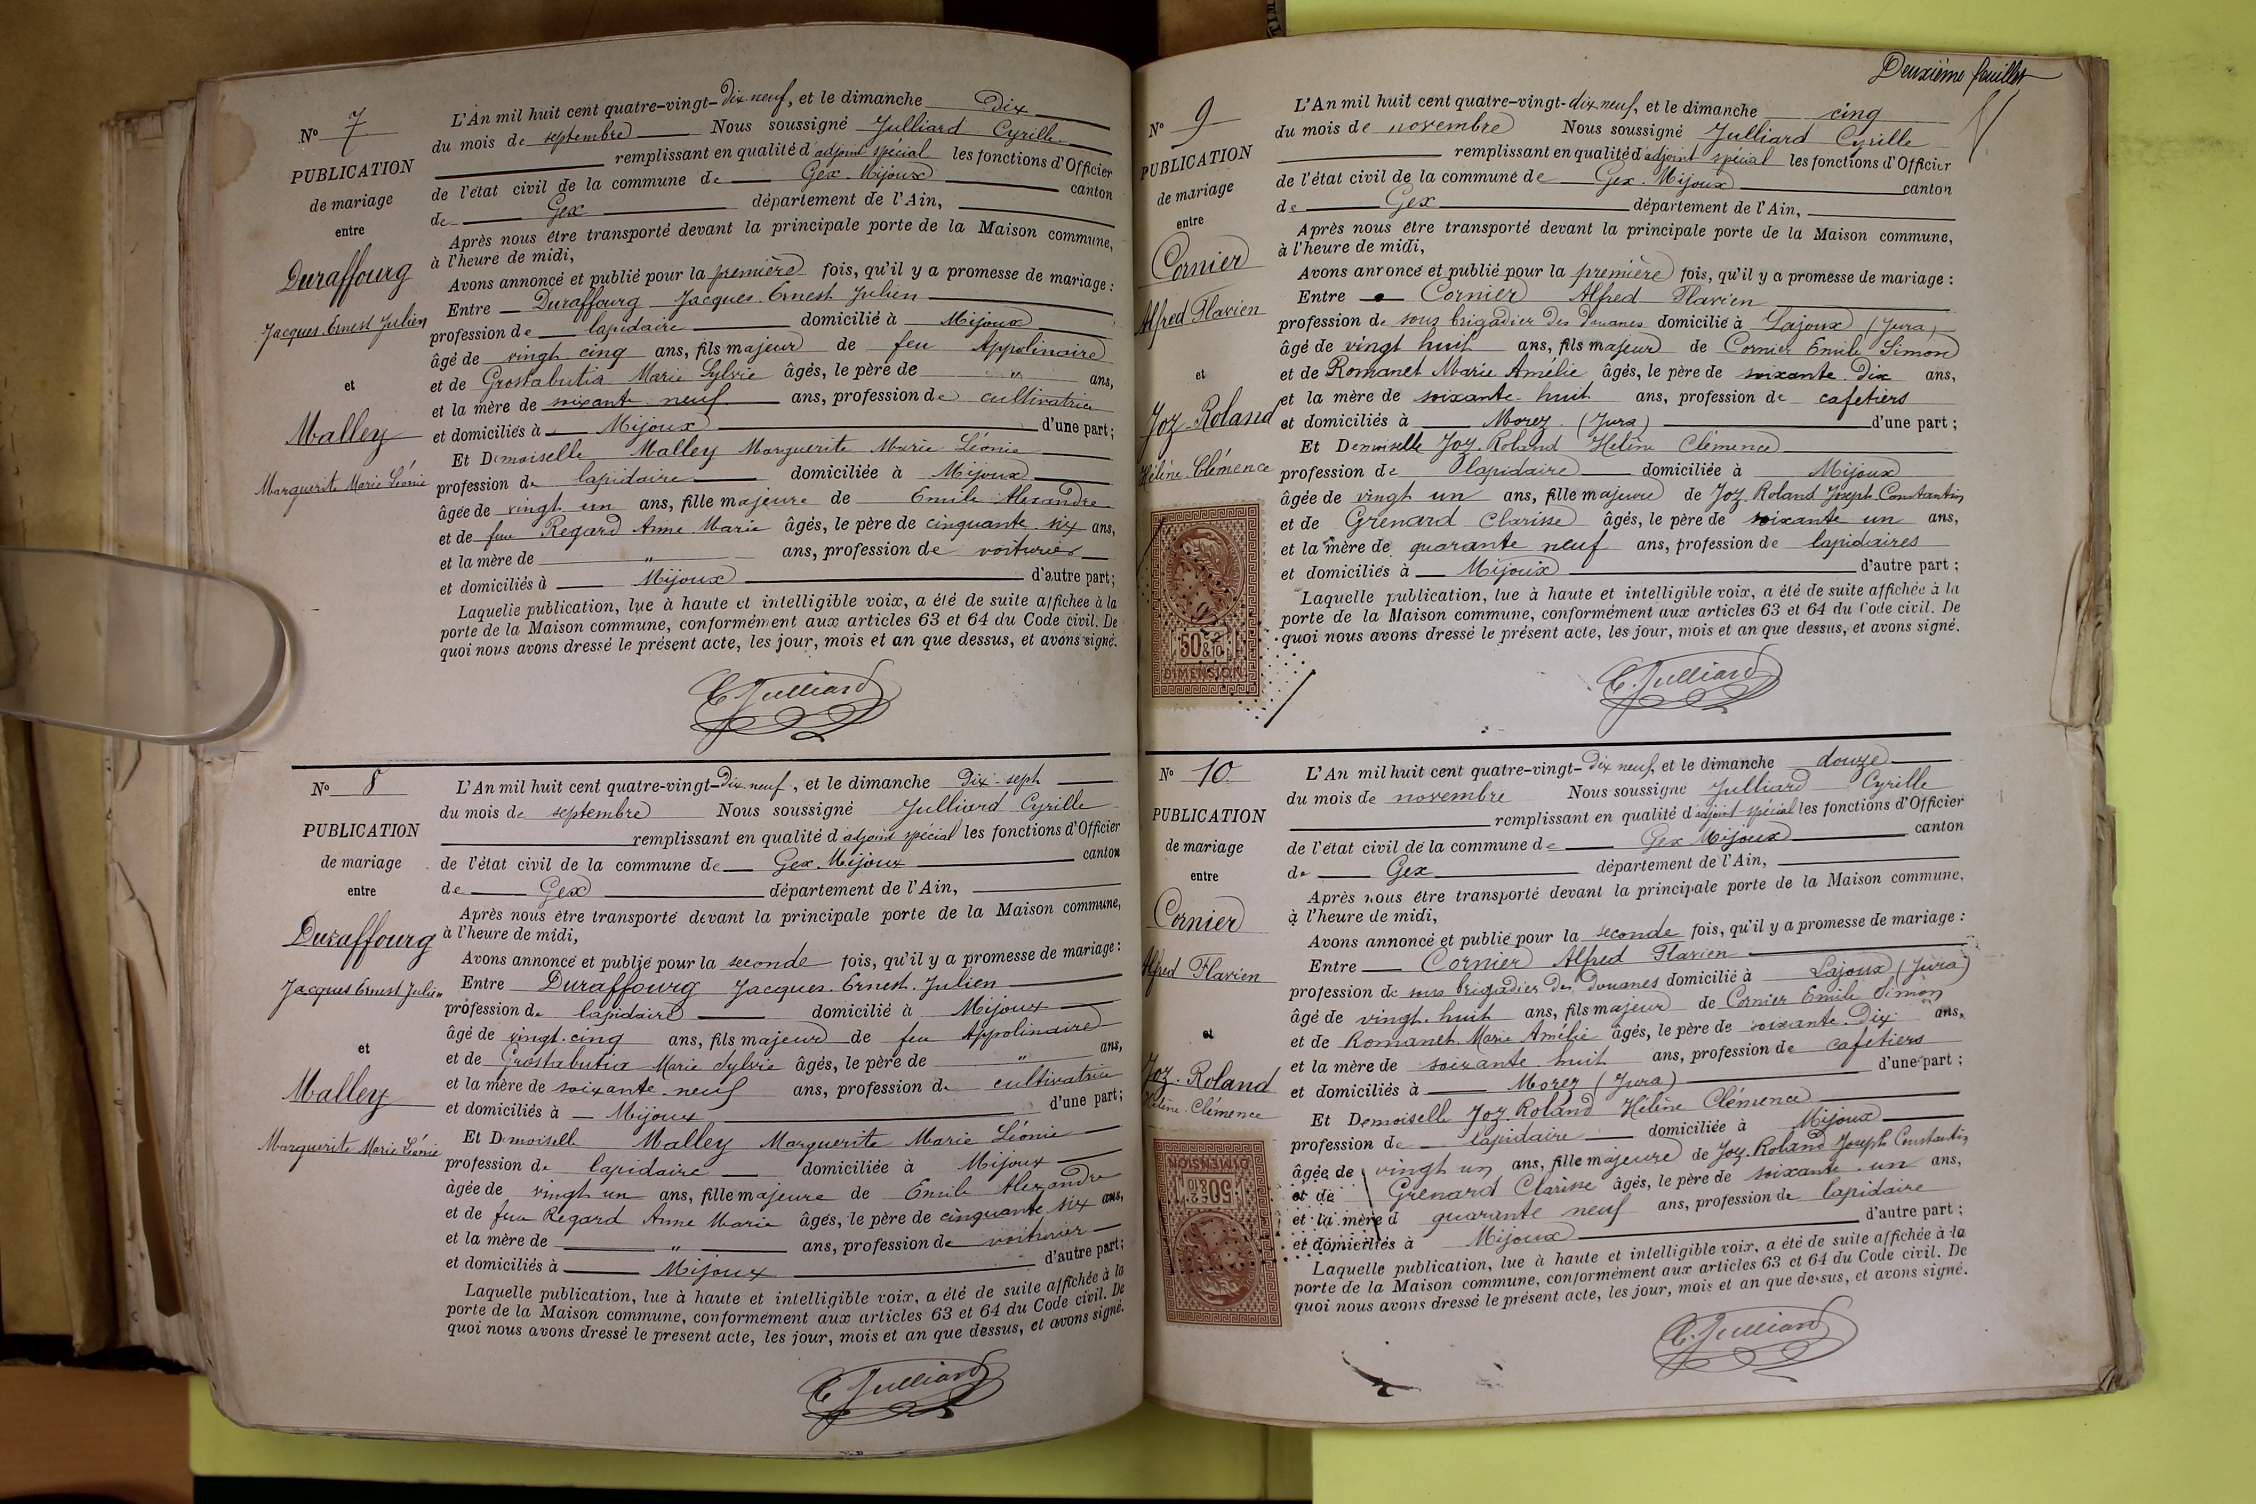 Nº 7
PUBLICATION
de mariage
entre
Duraffourg
Jacques Ernest Julien
et
Malley
Marguerite Marie Léonie
L'An mil huit cent quatre-vingt-dix neuf, et le dimanche dix
du mois de septembre Nous soussigné Julliard Cyrille
remplissant en qualité d'adjoint spécial les fonctions d'Officier
de l'état civil de la commune de Gex-Mijoux canton
de Gex département de l'Ain,
Après nous être transporté devant la principale porte de la Maison commune,
à l'heure de midi,
Avons annoncé et publié pour la première fois, qu'il y a promesse de mariage :
Entre Duraffourg Jacques Ernest Julien
profession de lapidaire domicilié à Mijoux
âgé de vingt cinq ans, fils majeur de feu Appolinaire
et de Grostabutia Marie Sylvie âgés, le père de " ans,
et la mère de soixante neuf ans, profession de cultivatrice
et domiciliés à Mijoux d'une part ;
Et Demoiselle Malley Marguerite Marie Léonie
profession de lapidaire domiciliée à Mijoux
âgée de vingt un ans, fille majeure de Emile Alexandre
et de feue Regard Anne Marie âgés, le père de cinquante six ans,
et la mère de " ans, profession de voiturier
et domiciliés à Mijoux d'autre part ;
Laquelle publication, lue à haute et intelligible voix, a été de suite affichée à la
porte de la Maison commune, conformément aux articles 63 et 64 du Code civil. De
quoi nous avons dressé le présent acte, les jour, mois et an que dessus, et avons signé.
C. Julliard
Nº 8
PUBLICATION
de mariage
entre
Duraffourg
Jacques Ernest Julien
et
Malley
Marguerite Marie Léonie
L'An mil huit cent quatre-vingt-dix neuf, et le dimanche dix-sept
du mois de septembre Nous soussigné Julliard Cyrille
remplissant en qualité d'adjoint spécial les fonctions d'Officier
de l'état civil de la commune de Gex-Mijoux canton
de Gex département de l'Ain,
Après nous être transporté devant la principale porte de la Maison commune,
à l'heure de midi,
Avons annoncé et publié pour la seconde fois, qu'il y a promesse de mariage :
Entre Duraffourg Jacques Ernest Julien
profession de lapidaire domicilié à Mijoux
âgé de vingt-cinq ans, fils majeur de feu Appolinaire
et de Grostabutia Marie Sylvie âgés, le père de " ans,
et la mère de soixante neuf ans, profession de cultivatrice
et domiciliés à Mijoux d'une part ;
Et Demoiselle Malley Marguerite Marie Léonie
profession de lapidaire domiciliée à Mijoux
âgée de vingt un ans, fille majeure de Emile Alexandre
et de feue Regard Anne Marie âgés, le père de cinquante six ans,
et la mère de " ans, profession de voiturier
et domiciliés à Mijoux d'autre part ;
Laquelle publication, lue à haute et intelligible voix, a été de suite affichée à la
porte de la Maison commune, conformément aux articles 63 et 64 du Code civil. De
quoi nous avons dressé le présent acte, les jour, mois et an que dessus, et avons signé.
C. Julliard
Deuxième feuillet
Nº 9
PUBLICATION
de mariage
entre
Cornier
Alfred Flavien
et
Joz-Roland
Hélène Clémence
50 &
DIMENSION
L'An mil huit cent quatre-vingt-dix neuf, et le dimanche cinq
du mois de novembre Nous soussigné Julliard Cyrille
remplissant en qualité d'adjoint spécial les fonctions d'Officier
de l'état civil de la commune de Gex-Mijoux canton
de Gex département de l'Ain,
Après nous être transporté devant la principale porte de la Maison commune,
à l'heure de midi,
Avons annoncé et publié pour la première fois, qu'il y a promesse de mariage :
Entre Cornier Alfred Flavien
profession de sous brigadier des douanes domicilié à Lajoux (Jura)
âgé de vingt huit ans, fils majeur de Cornier Emile Simon
et de Romanet Marie Amélie âgés, le père de soixante dix ans,
et la mère de soixante-huit ans, profession de cafetiers
et domiciliés à Morez (Jura) d'une part ;
Et Demoiselle Joz-Roland Hélène Clémence
profession de lapidaire domiciliée à Mijoux
âgée de vingt un ans, fille majeure de Joz-Roland Joseph Constantin
et de Grenard Clarisse âgés, le père de soixante un ans,
et la mère de quarante neuf ans, profession de lapidaires
et domiciliés à Mijoux d'autre part ;
Laquelle publication, lue à haute et intelligible voix, a été de suite affichée à la
porte de la Maison commune, conformément aux articles 63 et 64 du Code civil. De
quoi nous avons dressé le présent acte, les jour, mois et an que dessus, et avons signé.
C. Julliard
Nº 10
PUBLICATION
de mariage
entre
Cornier
Alfred Flavien
et
Joz-Roland
Hélène Clémence
DIMENSION
50
L'An mil huit cent quatre-vingt-dix neuf, et le dimanche douze
du mois de novembre Nous soussigné Julliard Cyrille
remplissant en qualité d'adjoint spécial les fonctions d'Officier
de l'état civil de la commune de Gex Mijoux canton
de Gex département de l'Ain,
Après nous être transporté devant la principale porte de la Maison commune,
à l'heure de midi,
Avons annoncé et publié pour la seconde fois, qu'il y a promesse de mariage :
Entre Cornier Alfred Flavien
profession de sous brigadier des douanes domicilié à Lajoux (Jura)
âgé de vingt-huit ans, fils majeur de Cornier Emile Simon
et de Romanet Marie Amélie âgés, le père de soixante-dix ans,
et la mère de soixante huit ans, profession de cafetiers
et domiciliés à Morez (Jura) d'une part ;
Et Demoiselle Joz-Roland Hélène Clémence
profession de lapidaire domiciliée à Mijoux
âgée de vingt un ans, fille majeure de Joz-Roland Joseph Constantin
et de Grenard Clarisse âgés, le père de soixante un ans,
et la mère d quarante neuf ans, profession de lapidaire
et domiciliés à Mijoux d'autre part ;
Laquelle publication, lue à haute et intelligible voix, a été de suite affichée à la
porte de la Maison commune, conformément aux articles 63 et 64 du Code civil. De
quoi nous avons dressé le présent acte, les jour, mois et an que dessus, et avons signé.
C. Julliard